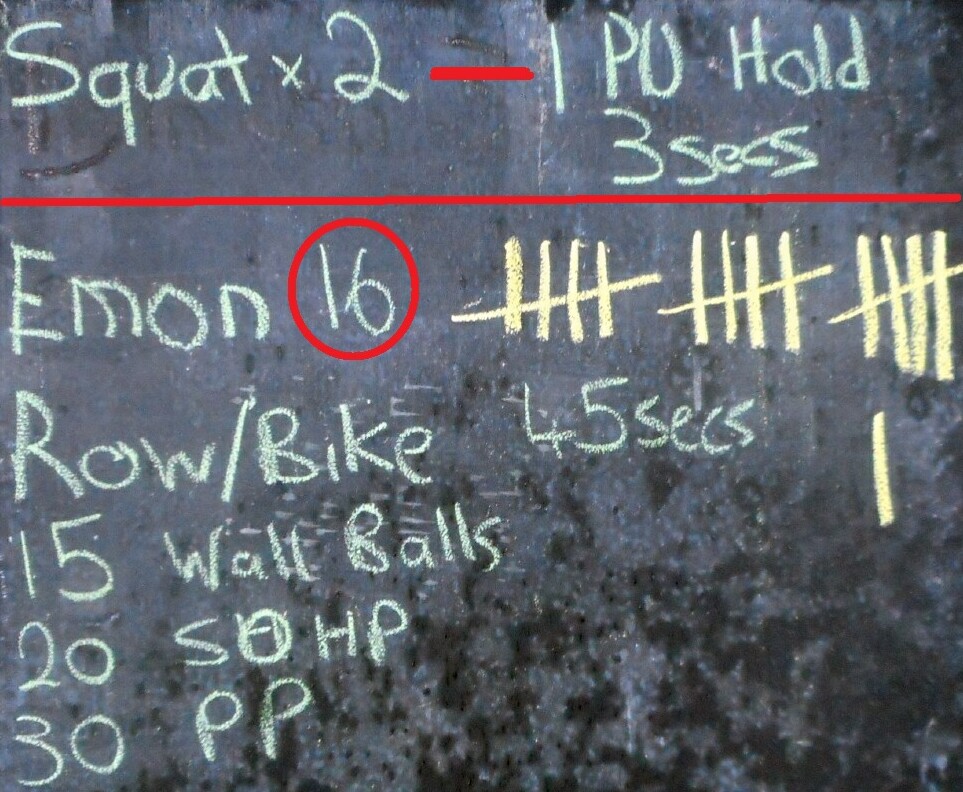 Squat x 2 — 1 PU Hold
3secs
Emon 16
Row/Bike 45secs
15 Wall Balls
20 SDHP
30 PP